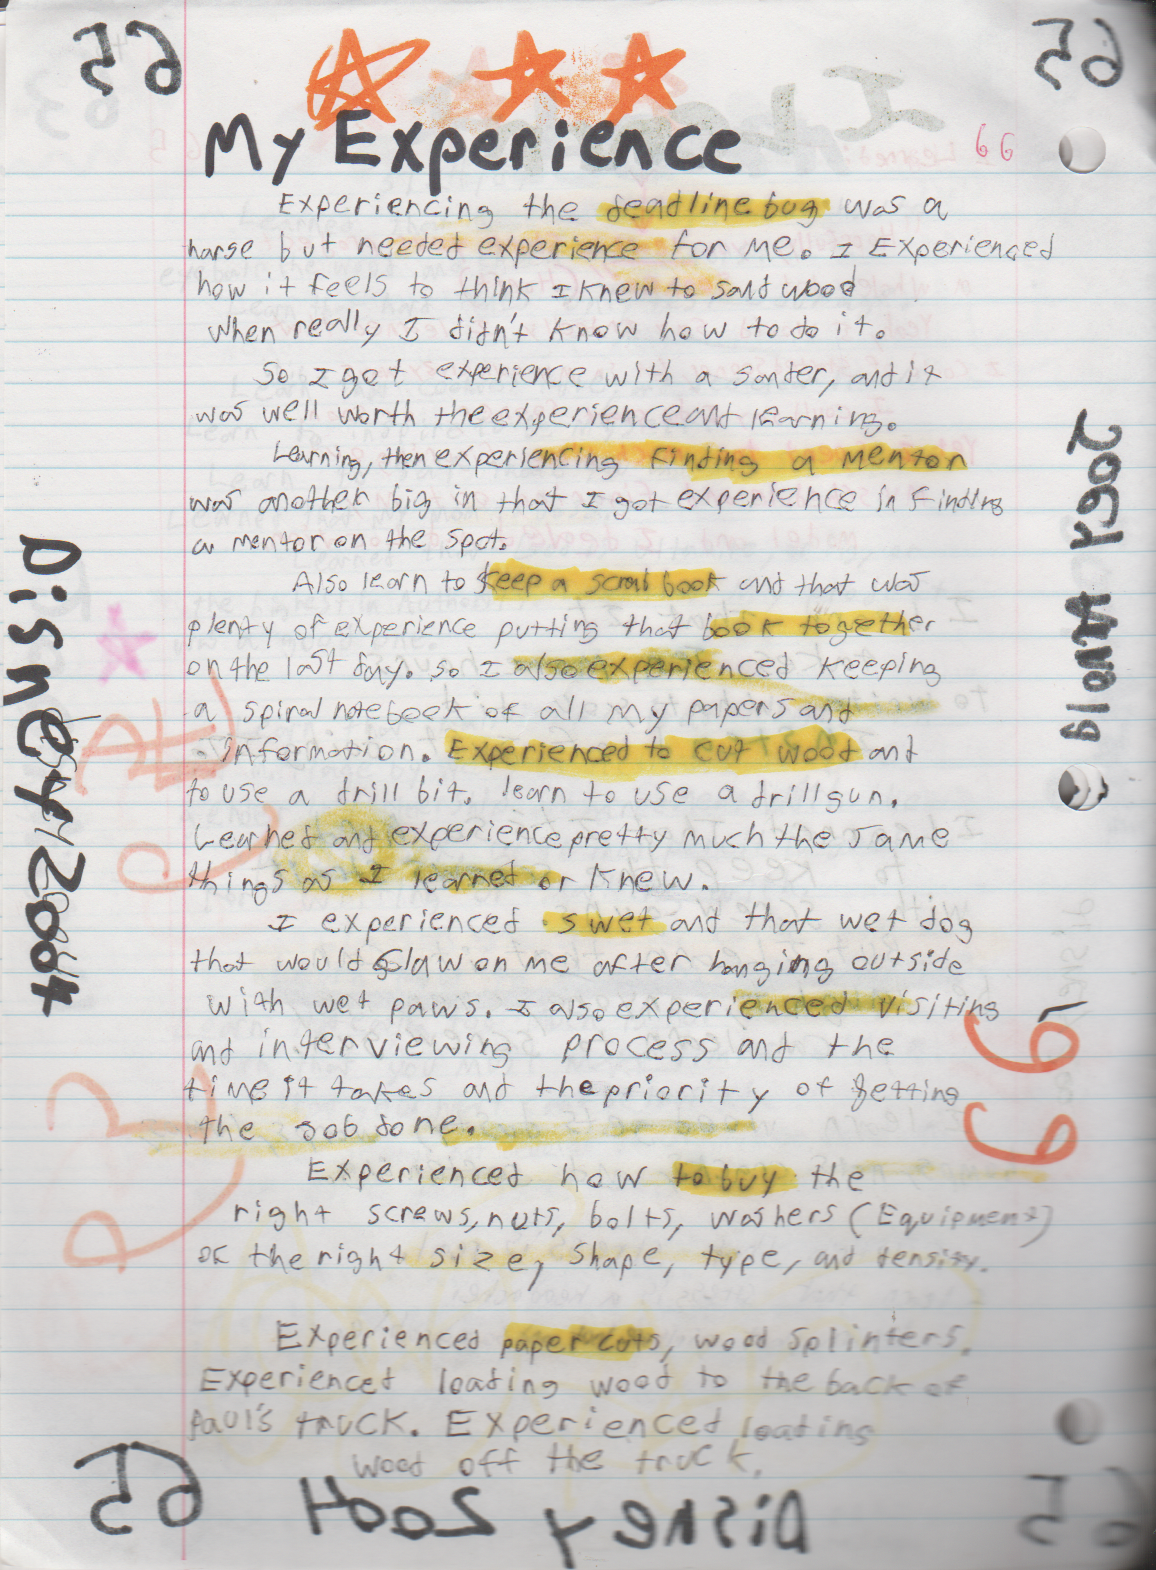 65
65
My Experience
66
Experiencing the deadline bug was a
harse but needed experience for me. I Experienced
how it feels to think I knew to sand wood
when really I didn't know how to do it.
So I got experience with a sander, and it
was well worth the experience and learning.
Learning, then experiencing Finding a mentor
was another big in that I got experience in Finding
a mentor on the spot.
Also learn to keep a scrab book and that was
plenty of experience putting that book together
on the last day. so I also experienced keeping
a spiral notebook of all my papers and
information. Experienced to cut wood and
to use a drill bit. learn to use a drill gun.
Learned and experience pretty much the same
things as I learned or knew.
I experienced swet and that wet dog
that would claw on me after hanging outside
with wet paws. I also experienced visiting
and interviewing process and the
time it takes and the priority of getting
the job done.
Experienced how to buy the
right screws, nuts, bolts, washers (Equipment)
ok the right size, shape, type, and density.
Experienced paper cuts, wood splinters.
Experienced loading wood to the back of
Paul's truck. Experienced loading
wood off the truck.
Disney 2004
66
65
Disney 2004
65